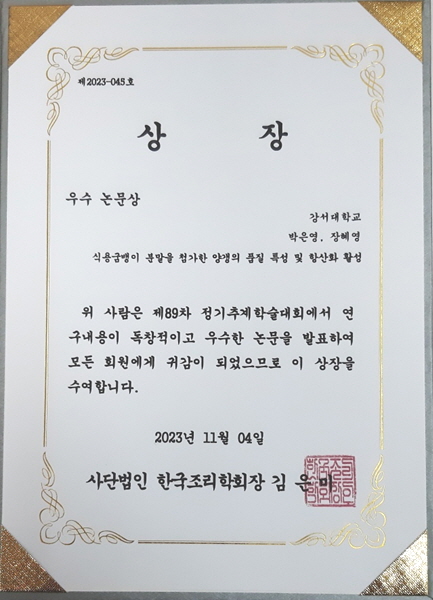 제2023-045호
상 장
우수 논문상
강서대학교
박은영, 장혜영
식용굼벵이 분말을 첨가한 양갱의 품질 특성 및 항산화 활성
위 사람은 제89차 정기추계학술대회에서 연
구내용이 독창적이고 우수한 논문을 발표하여
모든 회원에게 귀감이 되었으므로 이 상장을
수여합니다.
2023년 11월 04일
사단법인 한국조리학회장 김 은 미